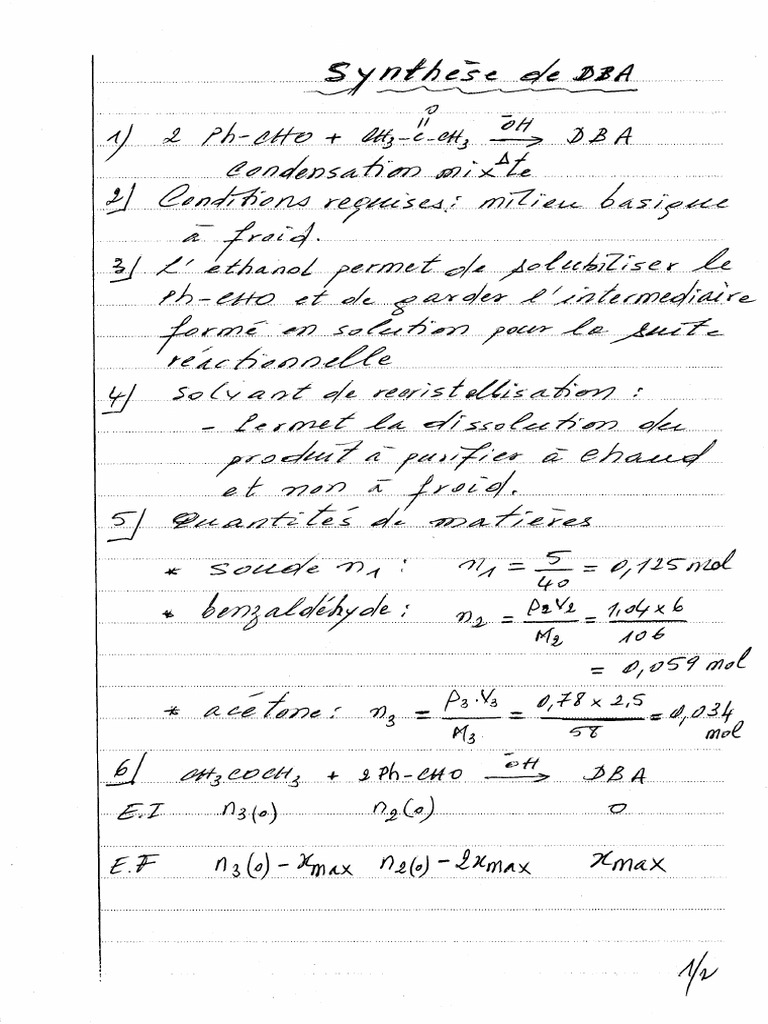 Synthèse de DBA
1) 2 Ph-CHO + CH3-C-CH3 →ŌH DBA
O
||
Δ
Condensation mixte
2) Conditions requises: milieu basique
à froid.
3) L'ethanol permet de solubiliser le
Ph-CHO et de garder l'intermediaire
formé en solution pour la suite
réactionnelle
4) Solvant de recristallisation :
- Permet la dissolution du
produit à purifier à chaud
et non à froid.
5) Quantités de matières
* soude n1 : n1 = 5/40 = 0,125 mol
* benzaldéhyde : n2 = ρ2V2/M2 = 1,04 x 6/106
= 0,059 mol
* acétone : n3 = ρ3.V3/M3 = 0,78 x 2,5/58 = 0,034
mol
6) CH3COCH3 + 2Ph-CHO →ŌH DBA
E.I n3(0) n2(0) 0
E.F n3(0) - xmax n2(0) - 2xmax xmax
1/2